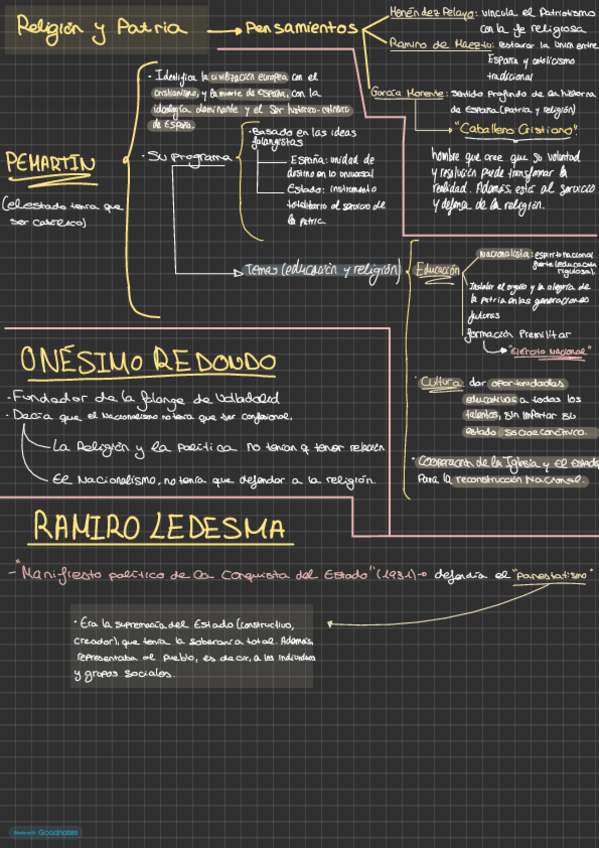 Religión y Patria
Pensamientos
Menéndez Pelayo: vincula el Patriotismo
con la fe religiosa
Ramiro de Maeztu: restaurar la unión entre
España y catolicismo
tradicional
García Morente: sentido profundo de la historia
de España (patria y religión)
"Caballero Cristiano":
hombre que cree que su voluntad
y resolución puede transformar la
realidad. Además, está al servicio
y defensa de la religión.
PEMARTÍN
(el estado tenía que
ser católico)
· Identifica la civilización europea con el
cristianismo, y la muerte de España, con la
ideología dominante y el ser histórico-católico
de España.
· Su programa
· Basado en las ideas
falangistas
España: unidad de
destino en lo universal
Estado: instrumento
totalitario al servicio de
la patria
Tema (educación y religión)
· Educación
Nacionalista: espíritu nacional
fuerte (educación
rigurosa).
Instalar el orgullo y la alegría de
la patria en las generaciones
futuras
formación Premilitar
"Ejército Nacional"
· Cultura: dar oportunidades
educativas a todos los
talentos, sin importar su
estado socioeconómico.
· Cooperación de la Iglesia y el Estado
Para la reconstrucción Nacional.
ONÉSIMO REDONDO
· Fundador de la falange de Valladolid
· Decía que el Nacionalismo no tenía que ser confesional.
La Religión y la política no tenían q tener relación
El Nacionalismo, no tenía que defender a la religión.
RAMIRO LEDESMA
- "Manifiesto político de la Conquista del Estado" (1931) → defendía el "panestatismo"
· Era la supremacía del Estado (constructivo,
creador), que tenía la soberanía total. Además,
representaba al pueblo, es decir, a los individuos
y grupos sociales.
Made with Goodnotes